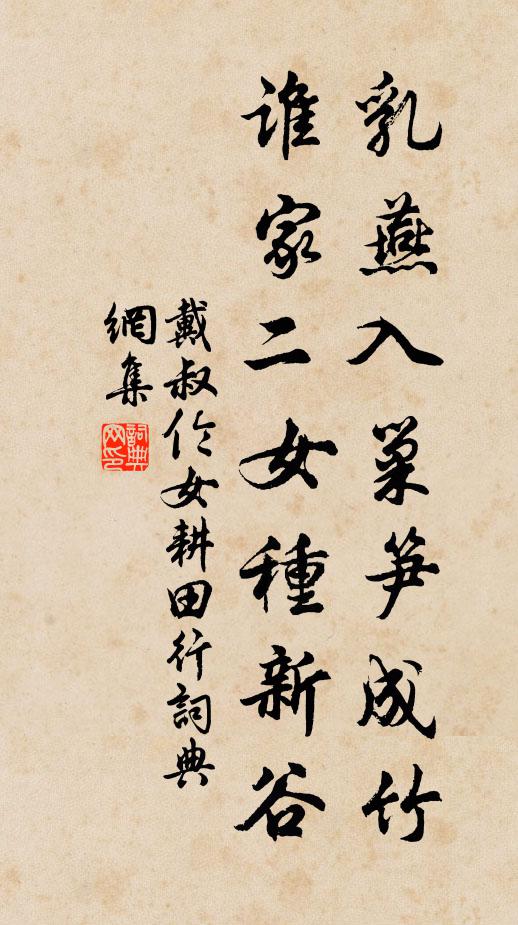 乳燕入巢笋成竹
谁家二女種新谷
戴叔伦女耕田行詞典
網集
詞典網印